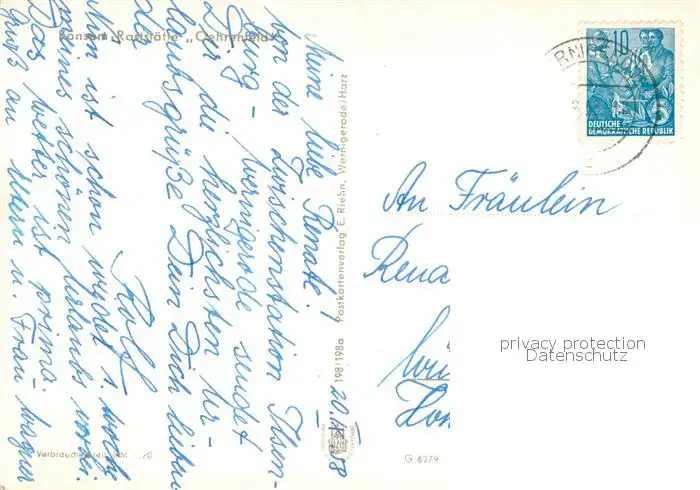 Konsum-Raststätte „Oehrenfeld"
20.IV.58
Meine liebe Renate!
Von der Zwischenstation Ilsen-
burg - Wernigerode sendet
Dir die herzlichsten Ur-
laubsgrüße Dein Dich lieben-
der
Rolf
Nun ist schon wieder 1. Woche
meines schönen Urlaubs vorbei.
Das Wetter ist prima.
Gruß an Mutti u. Frau Wagner
Postkartenverlag E. Riehn, Wernigerode/Harz
198/198a
G 6279
10
DEUTSCHE
DEMOKRATISCHE REPUBLIK
An Fräulein
Rena
privacy protection
Datenschutz